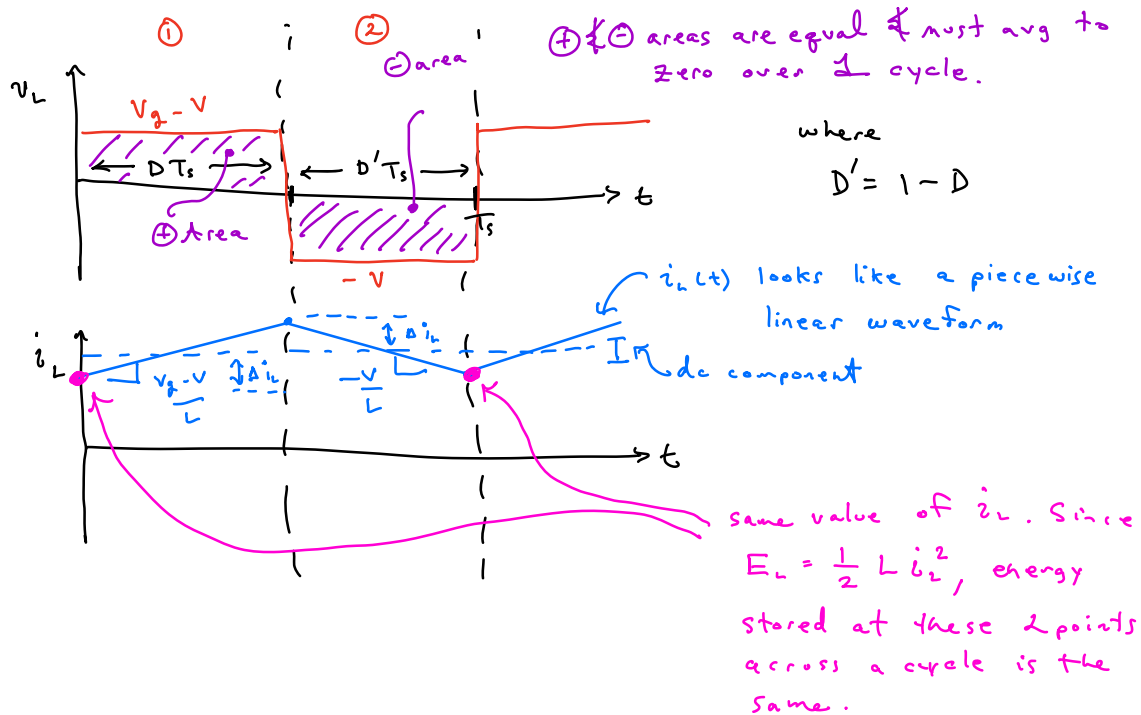 ① ②
⊕ & ⊖ areas are equal & must avg to
zero over 1 cycle.
⊖ area
v_L
V_g - V
where
D' = 1 - D
D T_s
D' T_s
t
T_s
⊕ Area
- V
i_L(t) looks like a piecewise
linear waveform
i_L
Δi_L
I
dc component
V_g - V
L
Δi_L
-V
L
t
same value of i_L. Since
E_L = 1/2 L i_L^2, energy
stored at these 2 points
across a cycle is the
same.